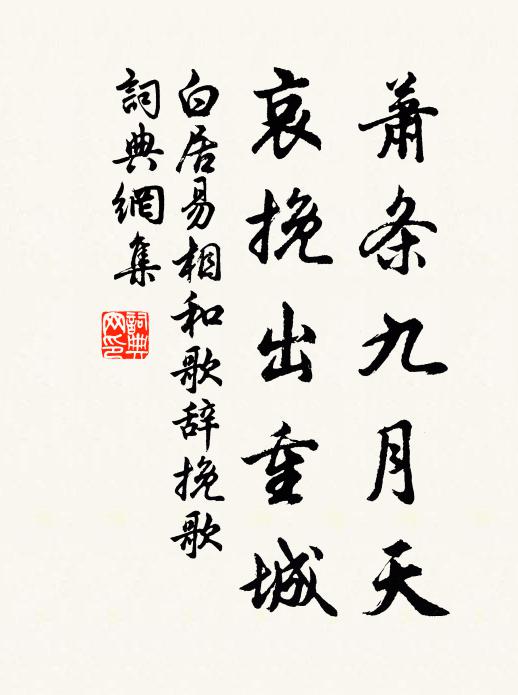 蕭条九月天
哀挽出重城
白居易相和歌辞挽歌
詞典網集
詞典网印